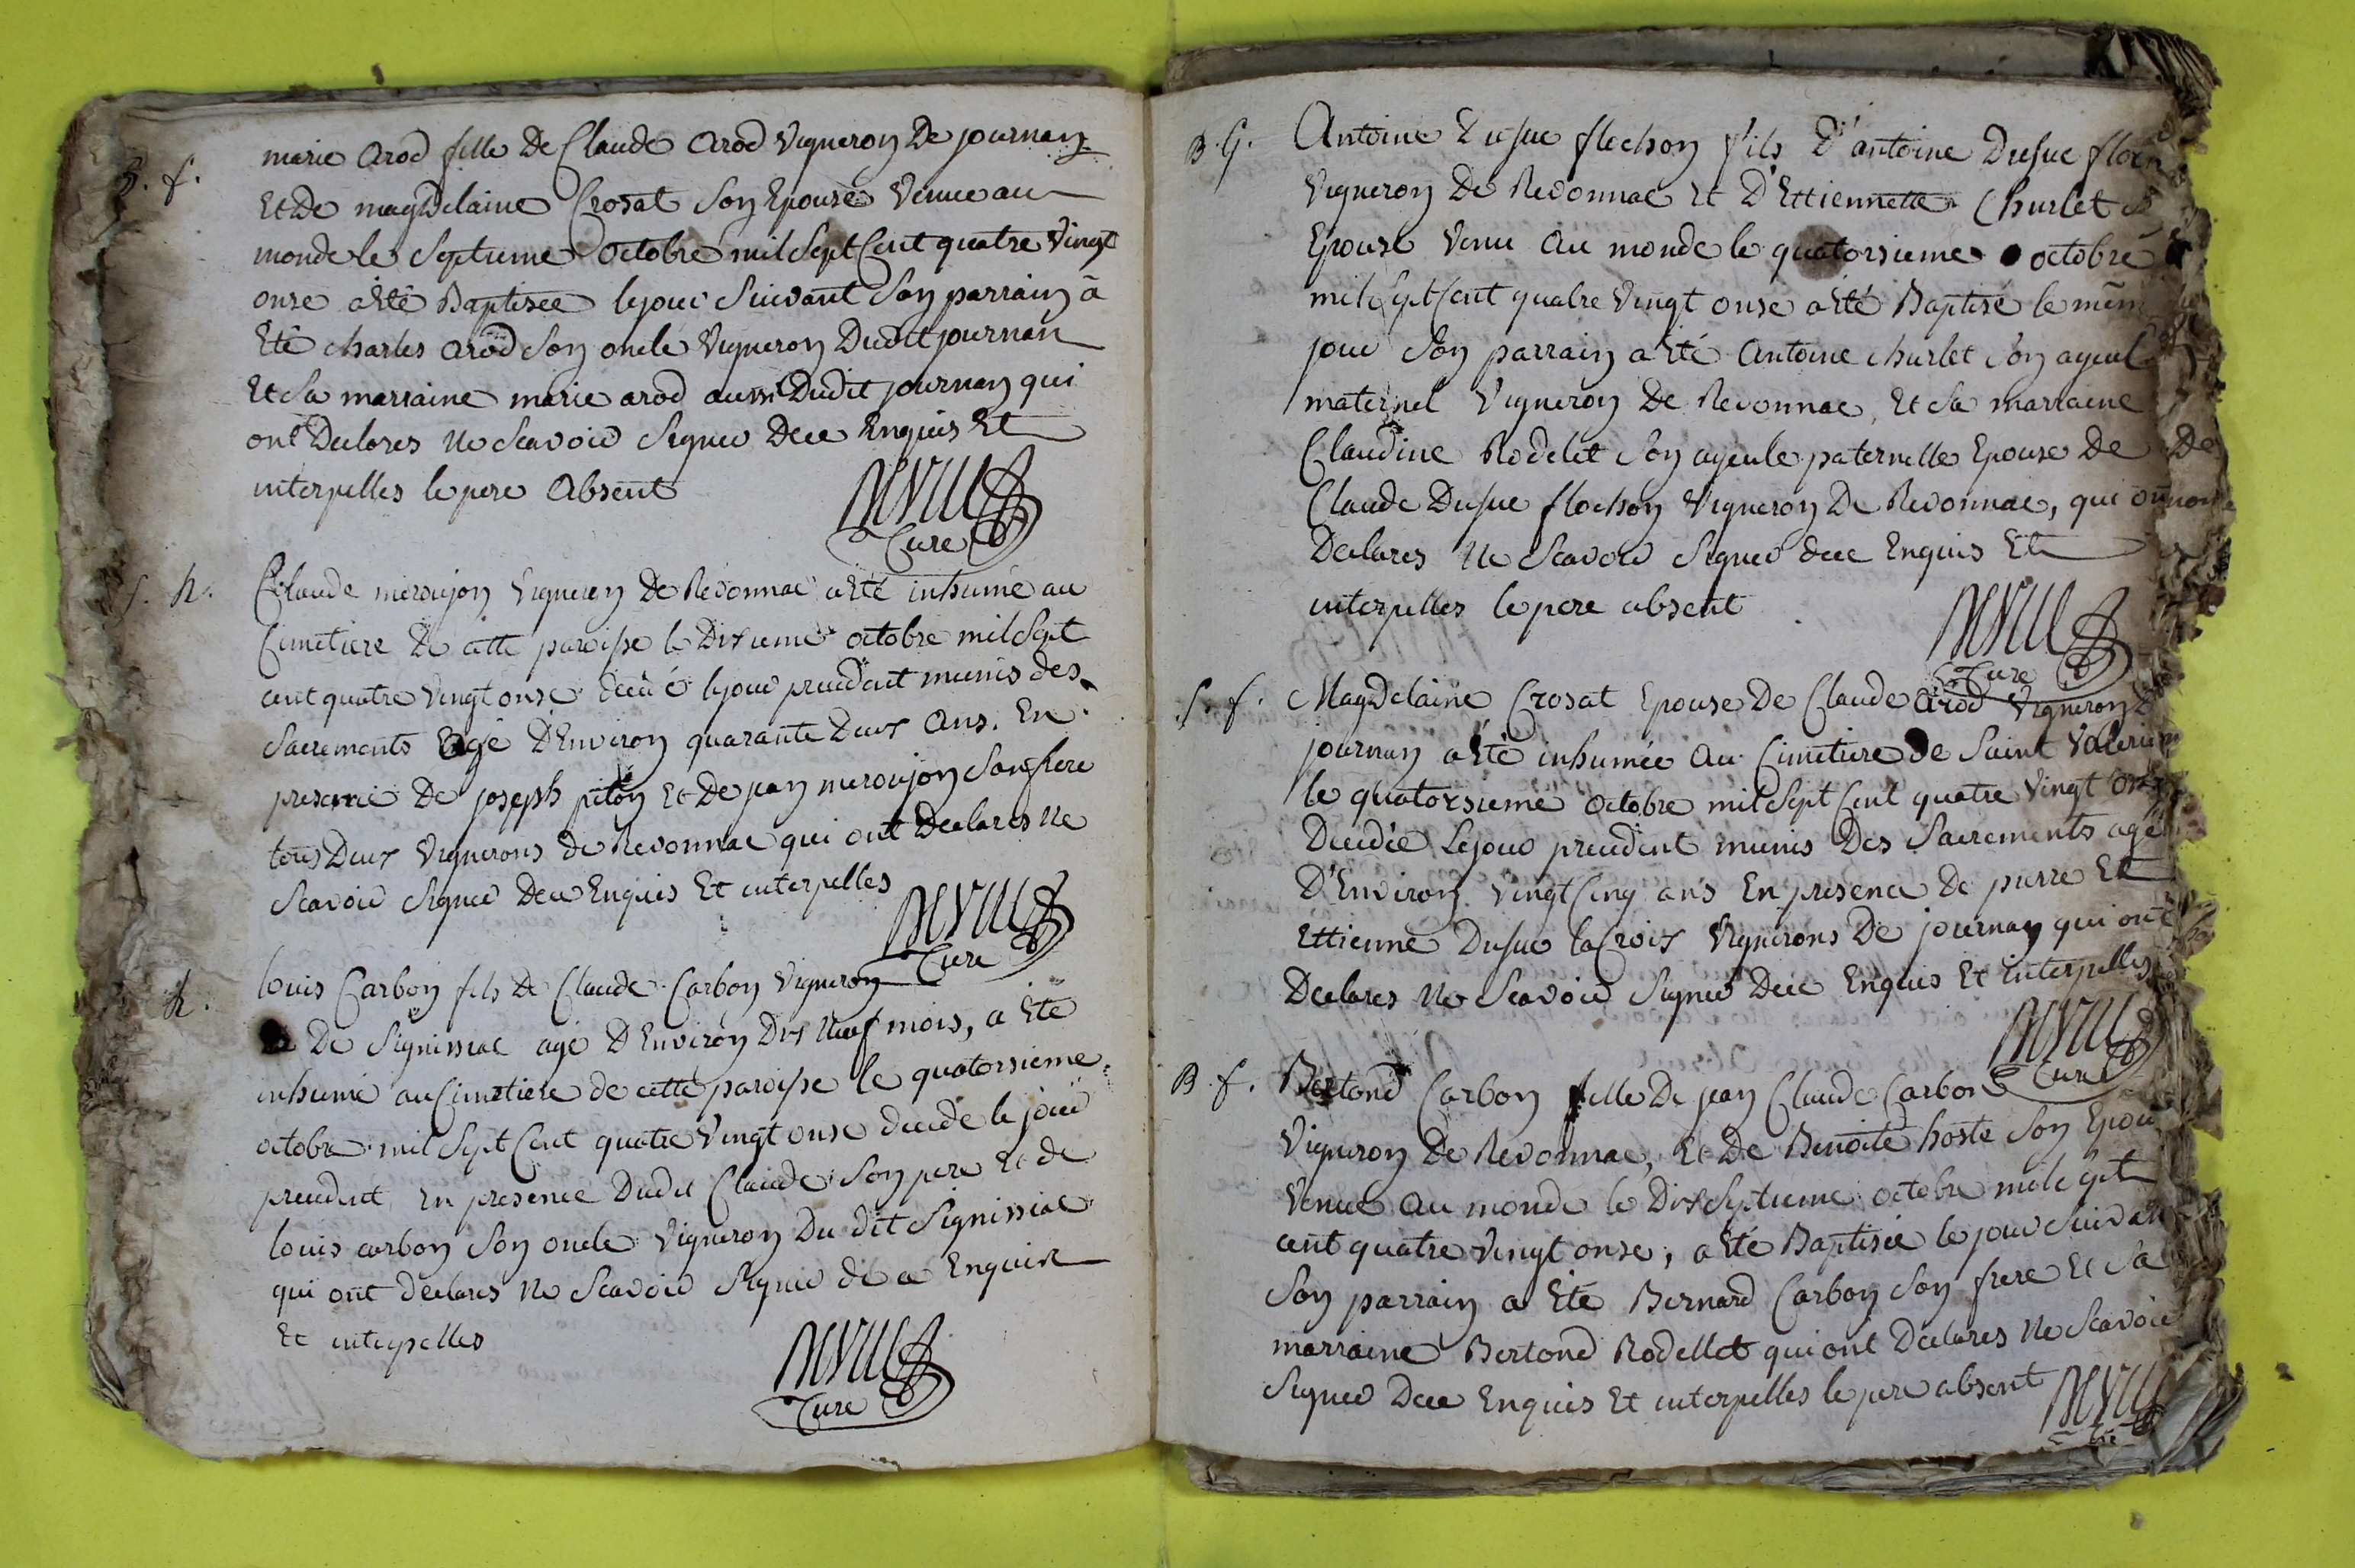 B. f. marie arod fille De Claude arod Vigneron De journan
Et De magdelaine Crosat Son Epouse Venue au
monde le Septieme octobre mil Sept Cent quatre Vingt
onse a Eté Baptisée le jour Suivant Son parrain à
Eté charles arod Son oncle Vigneron Dudit journan
Et Sa marraine marie arod aussi Dudit journan qui
ont Declares Ne Scavoir Signer Dece Enquis Et
interpelles le pere Absent
Neyme
Cure
S. h. Claude meroujon Vigneron De Revonnac a Eté inhumé au
Cimetiere De cette paroisse le Dixieme octobre mil Sept
cent quatre Vingt onse decedé le jour precedent munis des
Sacrements Agé D'Environ quarante Deux Ans. En
presence De joseph piton Et De jean meroujon Son frere
tous Deux Vignerons de Revonnac qui ont Declares Ne
Scavoir Signer Dece Enquis Et interpelles
Cure
h. louis Carbon fils De Claude Carbon Vigneron
De Signissiac agé D'Environ Dix Neuf mois, a Eté
inhumé au Cimetiere de cette paroisse le quatorsieme
octobre mil Sept Cent quatre Vingt onse decede le jour
precedent En presence Dudit Claude Son pere Et de
louis carbon Son oncle Vigneron Du dit Signissiac
qui ont declares Ne Scavoir Signer de ce Enquis
Et interpelles
Cure
B. G. Antoine Dusuc flochon fils D'antoine Dusuc
Vigneron De Revonnac Et D'Ettiennette Churlet
Epouse Venu Au monde le quatorsieme octobre
mil Sept Cent quatre Vingt onse a Eté Baptisé le même
jour Son parrain a Eté Antoine churlet Son ayeul
maternel Vigneron De Revonnac, Et Sa marraine
Claudine Rodelet Son ayeule paternelle Epouse De
Claude Dusuc flochon Vigneron De Revonnac, qui ont
Declares Ne Scavoir Signer dece Enquis Et
interpelles le pere absent
Cure
S. f. Magdelaine Crosat Epouse De Claude arod Vigneron
journan a Eté inhumée Au Cimetiere De Saint Valerien
le quatorsieme octobre mil Sept Cent quatre Vingt onse
Decedée Le jour precedent munis Des Sacrements agé
D'Environ Vingt Cinq ans En presence De pierre Et
Ettienne Dusuc la Croix Vignerons De journan qui ont
Declares Ne Scavoir Signer Dece Enquis Et interpelles
Cure
B. f. Bertond Carbon fille De jean Claude Carbon
Vigneron De Revonnac, Et De Benoite hoste Son Epou
Venue Au monde le Dix Septieme octobre mil Sept
cent quatre Vingt onse, a Eté Baptisée le jour Suivant
Son parrain a Eté Bernard Carbon Son frere Et Sa
marraine Bertond Rodellet qui ont Declares Ne Scavoir
Signer Dece Enquis Et interpelles le pere absent